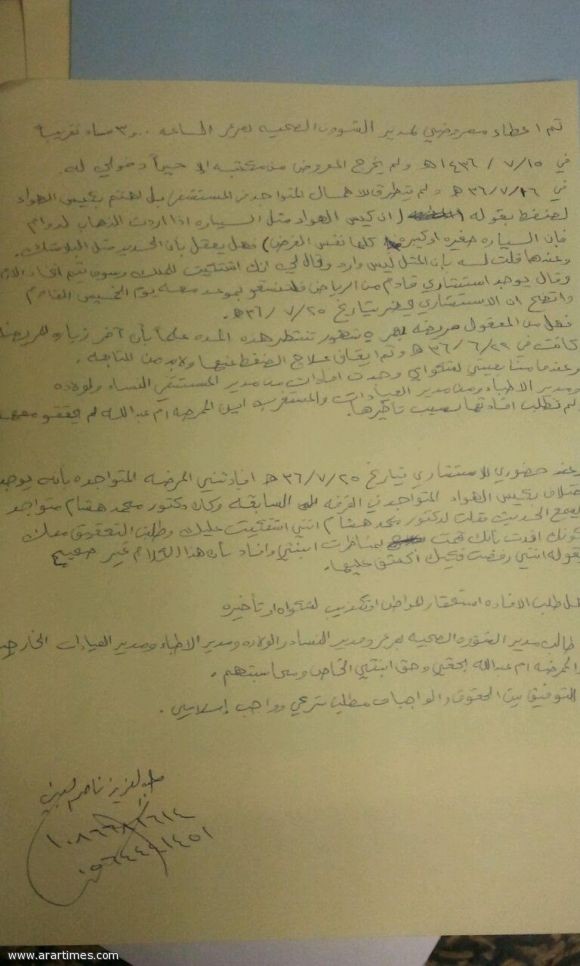 تم اعطاء معروضي لمدير الشؤون الصحيه بعرعر الساعه ٣٠٠٠ مساء تقريباً
في ١٥ / ٧ / ١٤٣٦ هـ ولم يخرج المعروض من مكتبه الى حين دخولي له
في ١٦ / ٧ / ٣٦ هـ ولم يتطرق لاهمال المتواجد في المستشفى بل اهتم بكيس الهواء
لضغط بقوله ان كيس الهواء مثل السياره اذا اردت الذهاب لدوام
فإن السياره صغيره او كبيره كلها نفس الغرض) فهل يعقل بأن الحديد مثل البلاستك.
وعندها قلت له بأن المثل ليس وارد وقال لي انك اشتكيت للملك وسوف يتم
وقال يوجد استشاري قادم من الرياض موعد معه يوم الخميس القادم
واتضح ان الاستشاري يحضر بتاريخ ٢٥ / ٧ / ٣٦ هـ.
فهل من المعقول مريضه ٥ شهور تنتظر هذه المده علماً بأن آخر زياره للمريضه
كانت في ٢٢ / ٦ / ٣٦ هـ وتم ايقاف علاج الضغط عنها ولابد من المتابعه.
وعند متابعتي لشكواي وجدت افادات من مدير المستشفى النساء والولاده
ومدير الاطباء ومن مدير العيادات والمستغرب اين الممرضه ام عبدالله لم يحقق معها
لم تطلب افادتها بسبب تأخيرها.
وعند حضوري للاستشاري بتاريخ ٢٥ / ٧ / ٣٦ هـ افادتني الممرضه المتواجده بأنه يوجد
بكيس الهواء المتواجد في الغرفه السابقه وكان دكتور محمد هشام متواجد
الحديث قلت لدكتور محمد هشام انني اشتكيت عليك وطلبت التحقيق معك
كونك افدت بأنك قمت ابنتي وافاد بأن هذا الكلام غير صحيح
بقوله انني رفضت فكيف اكشف عليها.
طلب الافاده استحقار للمواطن او تكذيب لشكواه او تأخيره
طالب مدير الشؤون الصحيه بعرعر ومدير النساء والولاده ومدير الاطباء ومدير العيادات الخارجيه
والممرضه ام عبدالله بحقي وحق ابنتي الخاص ومحاسبتهم.
التوفيق بين الحقوق والواجبات مطلب شرعي وواجب إسلامي.
عبدالعزيز ناصر
١٠٨٦٦٨١٦١٤
٠٥٦٤٤٩١٤٥١
www.arartimes.com